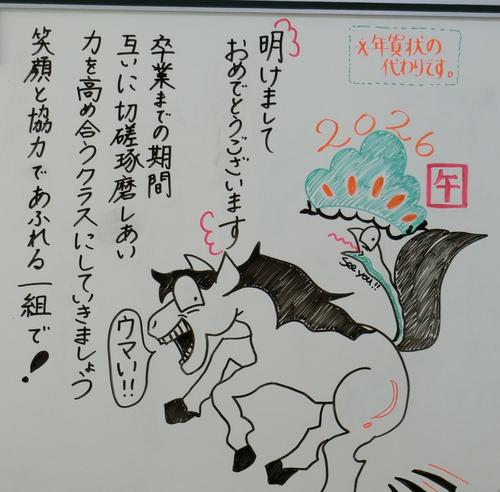 ※年賀状の
代わりです。
2026
午
明けまして
おめでとうございます
卒業までの期間
互いに切磋琢磨しあい
力を高め合うクラスにしていきましょう
笑顔と協力であふれる一組で!
See you!!
ウマい!!